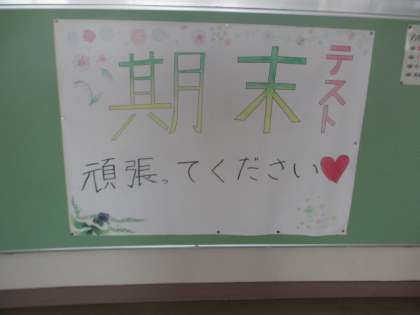 期末テスト
頑張ってください♥